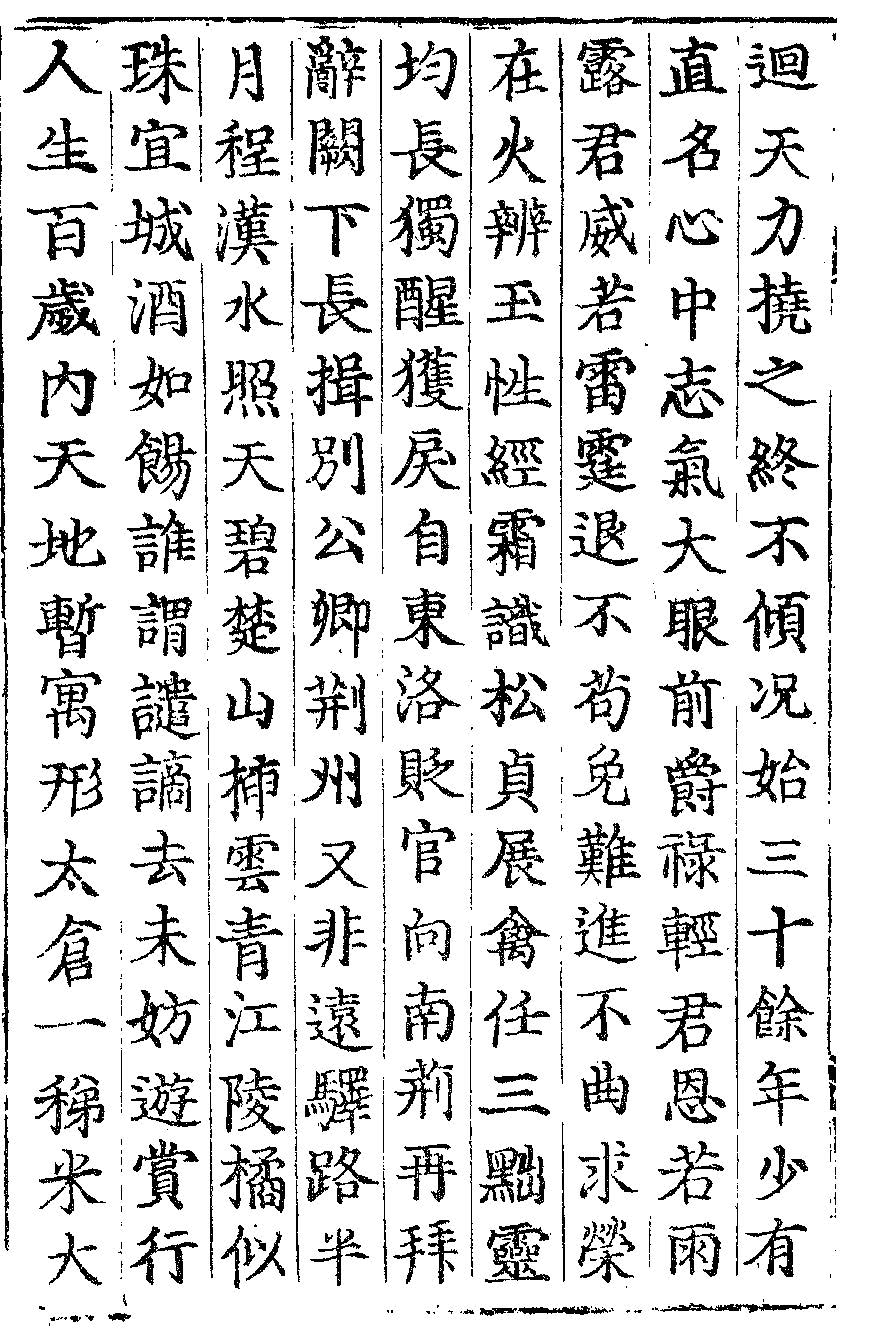 迴天力撓之終不傾况始三十餘年少有
直名心中志氣大眼前爵祿輕君恩若雨
露君威若雷霆退不苟免難進不曲求榮
在火辨玉性經霜識松貞展禽任三黜靈
均長獨醒獲戾自東洛貶官向南荊再拜
辭闕下長揖別公卿荊州又非遠驛路半
月程漢水照天碧楚山插雲青江陵橘似
珠宜城酒如餳誰謂譴謫去未妨遊賞行
人生百歲內天地暫寓形太倉一稊米大